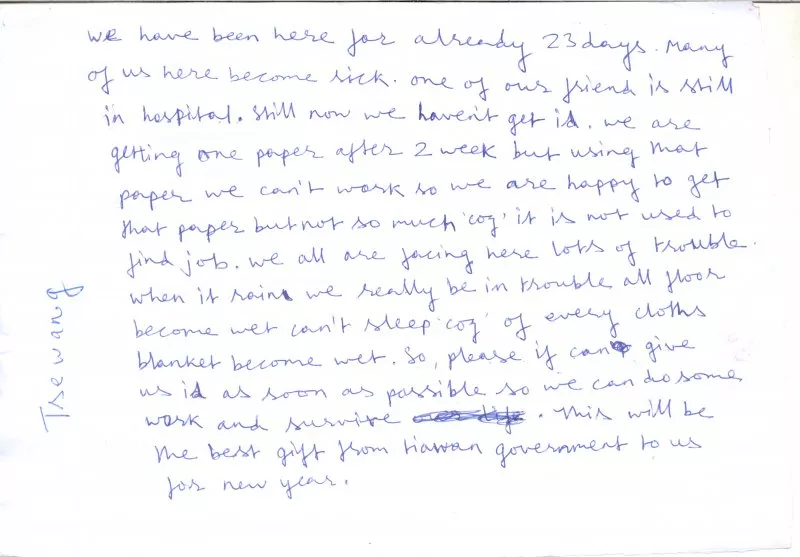 we have been here for already 23 days. Many
of us here become sick. one of our friend is still
in hospital. Still now we haven't get id. we are
getting one paper after 2 week but using that
paper we can't work so we are happy to get
that paper but not so much 'coz' it is not used to
find job. we all are facing here lots of trouble.
when it rain we really be in trouble all floor
become wet can't sleep 'coz' of every cloths
blanket become wet. So, please if can give
us id as soon as possible so we can do some
work and survive . This will be
the best gift from tiawan government to us
for new year.
Tsewang